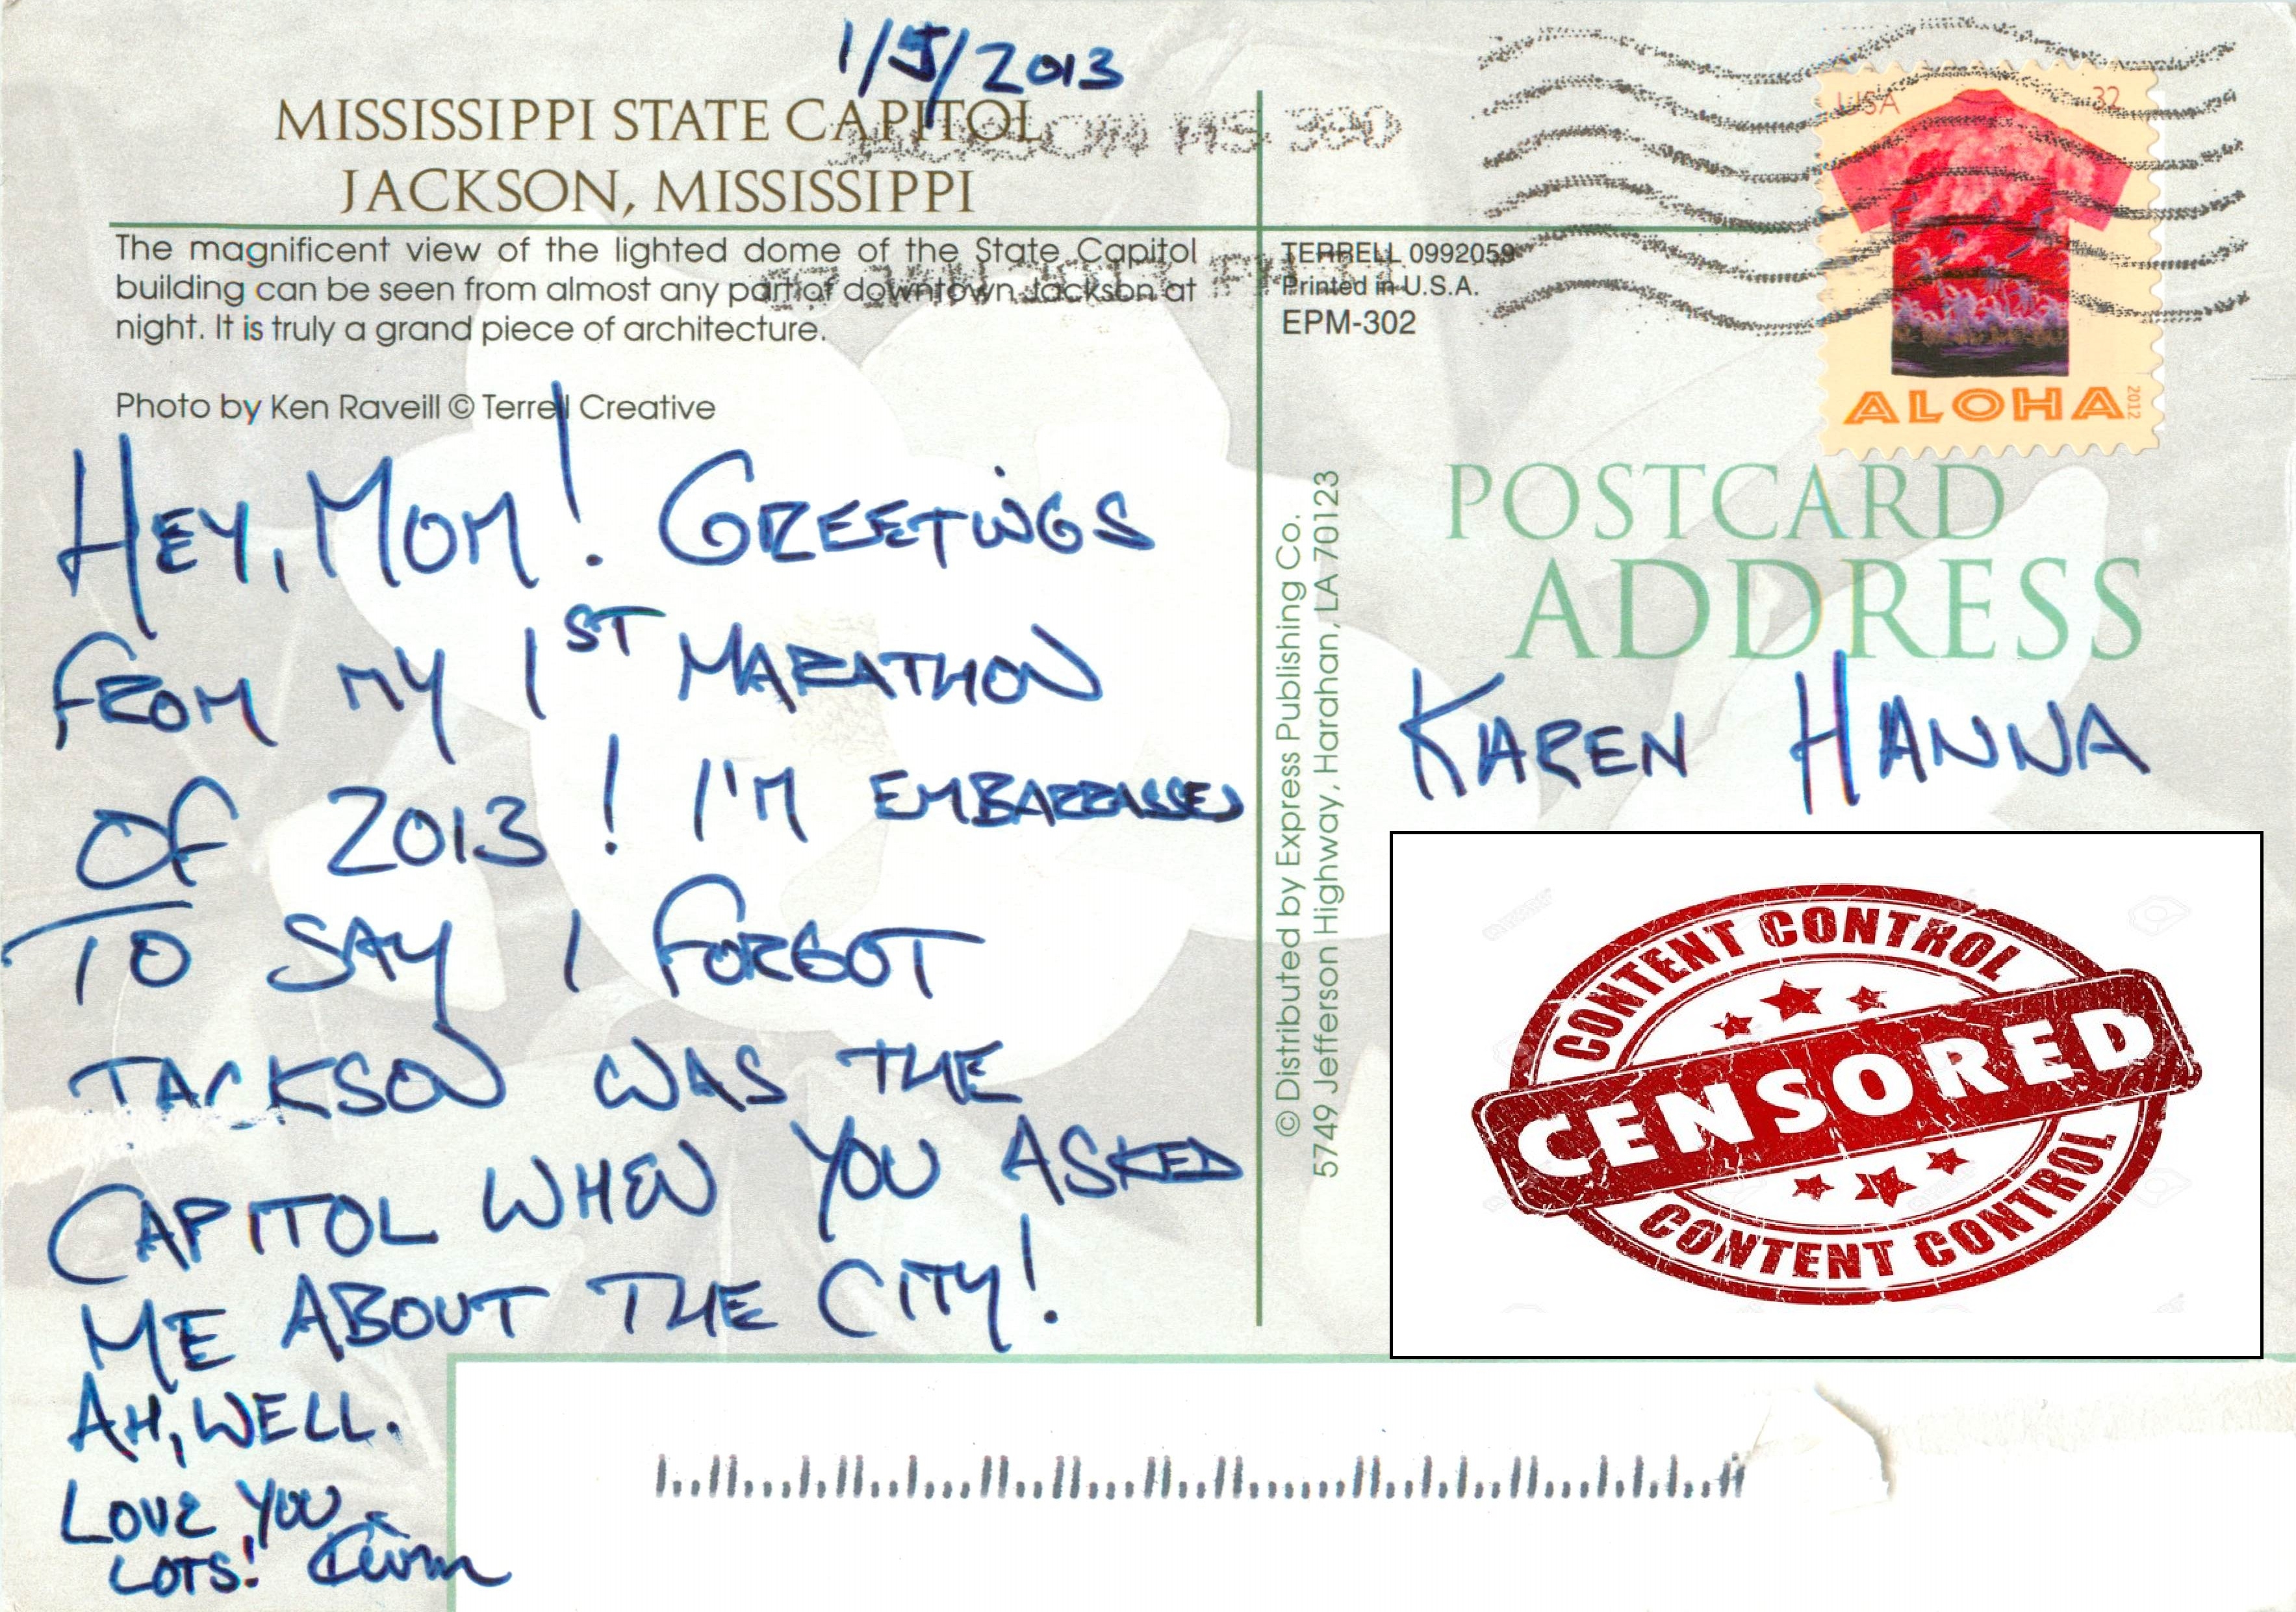 1/5/2013
MISSISSIPPI STATE CAPITOL
JACKSON, MISSISSIPPI
The magnificent view of the lighted dome of the State Capitol
building can be seen from almost any part of downtown Jackson at
night. It is truly a grand piece of architecture.
Photo by Ken Raveill © Terrell Creative
HEY, MOM! GREETINGS
FROM MY 1ST MARATHON
OF 2013! I'M EMBARRASSED
TO SAY I FORGOT
JACKSON WAS THE
CAPITOL WHEN YOU ASKED
ME ABOUT THE CITY!
AH, WELL.
LOVE YOU
LOTS! Kevin
JACKSON MS 390
TERRELL 0992059
Printed in U.S.A.
EPM-302
© Distributed by Express Publishing Co.
5749 Jefferson Highway, Harahan, LA 70123
USA 32
ALOHA 2012
POSTCARD
ADDRESS
KAREN HANNA
CONTENT CONTROL
CENSORED
CONTENT CONTROL